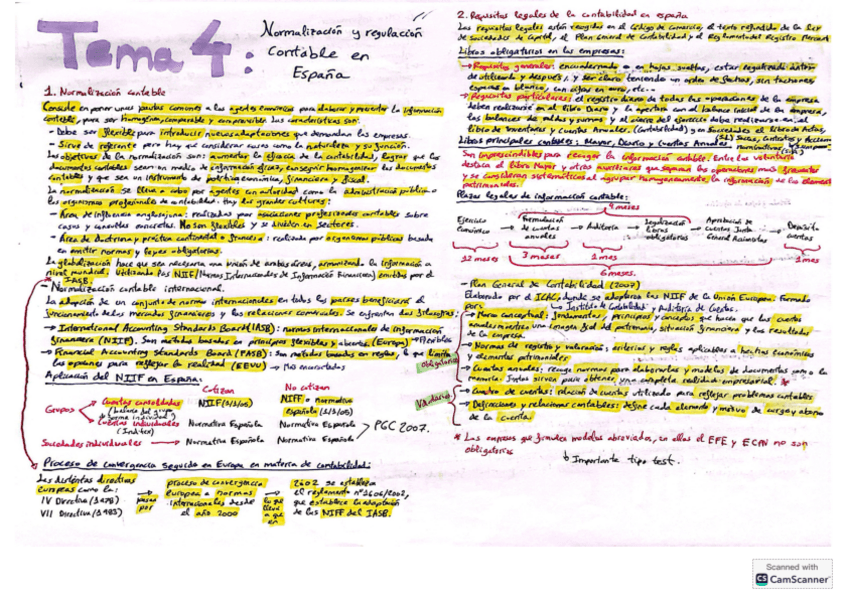 Tema 4:
Normalización y regulación
contable en
España
1. Normalización contable
Consiste en poner unas pautas comunes a los agentes económicos para elaborar y presentar la información
contable, para ser homogénea, comparable y comprensible. Las características son:
- Debe ser flexible para introducir nuevas adaptaciones que demandan las empresas.
- Sirve de referente pero hay que considerar cosas como la naturaleza y su función.
Los objetivos de la normalización son: aumentar la eficacia de la contabilidad, lograr que los
documentos contables sean un medio de información eficaz, conseguir homogeneizar los documentos
contables y que sea un instrumento de política económica, financiera y fiscal.
La normalización se lleva a cabo por agentes con autoridad como la administración pública o
los organismos profesionales de contabilidad. Hay dos grandes culturas:
- Área de influencia anglosajona: realizadas por asociaciones profesionales contables sobre
casos y consultas concretas. No son flexibles y se dividen en sectores.
- Área de doctrina y práctica continental o francesa: realizada por organismos públicos basada
en emitir normas y leyes obligatorias.
La globalización hace que sea necesaria una visión de ambas áreas, armonizando la información a
nivel mundial. Utilizando las NIIF (Normas Internacionales de Información Financiera) emitidas por el
IASB.
- Normalización contable internacional.
La adopción de un conjunto de normas internacionales en todos los países beneficiará el
funcionamiento de los mercados financieros y las relaciones comerciales. Se enfrentan dos filosofías:
→ International Accounting Standards Board (IASB): normas internacionales de información
financiera (NIIF). Son métodos basados en principios flexibles y abiertos (Europa) → Flexibles
→ Financial Accounting Standards Board (FASB): Son métodos basados en reglas, lo que limita
las opciones para reflejar la realidad (EEUU) → muy encorsetados
Aplicación del NIIF en España:
Cotizan No cotizan
Grupos
Cuentas consolidadas NIIF (1/1/05) NIFF o normativa
(balance del grupo española (1/1/05)
Cuentas individuales Normativa Española Normativa Española
(Inditex)
PGC 2007.
Sociedades individuales → Normativa Española Normativa Española
Proceso de convergencia seguido en Europa en materia de contabilidad:
Las distintas directivas
europeas como la:
IV Directiva (1978)
VII Directiva (1983)
pasan
por
proceso de convergencia
europea a normas
internacionales desde
el año 2000
lo que
lleva
a que
en
2002 se establezca
el reglamento nº 1606/2002,
que establece la adaptación
de las NIFF del IASB.
2. Requisitos legales de la contabilidad en España
Los requisitos legales están recogidos en el Código de Comercio, el texto refundido de la Ley
de Sociedades de Capital, el Plan General de Contabilidad y el Reglamento del Registro Mercant
Libros obligatorios en las empresas:
→ Requisitos generales: encuadernado o en hojas sueltas, estar registrado antes
de utilizarlo y después, y ser claro, teniendo un orden de fechas, sin tachones
espacios blancos, con cifras en euro, etc..
→ Requisitos particulares: el registro diario de todas las operaciones de la empresa
deben realizarse en el libro Diario y la apertura con el balance inicial de la empresa,
los balances de saldos y sumas y al cierre del ejercicio debe realizarse en el
libro de Inventarios y Cuentas Anuales. (Contabilidad) y en Sociedades el libro de Actas,
Libros principales contables: Mayor, Diario y Cuentas Anuales
Son imprescindibles para recoger la información contable. Entre los voluntarios
destaca el Libro Mayor y otros auxiliares que separan las operaciones más frecuentes
y se consideran sistemáticos al agrupar homogéneamente la información de los elementos
patrimoniales.
Plazos legales de información contable:
4 meses
Ejercicio
Económico
Formulación
de cuentas
anuales
Auditoría
Legalización
libros
obligatorios
Aprobación de
cuentas Junta
General Accionistas
Depósito
cuentas
12 meses 3 meses 1 mes 1 mes
6 meses.
- Plan General de Contabilidad (2007)
Elaborado por el ICAC, donde se adoptaron las NIIF de la Unión Europea. Formado
por: ↳ Instituto de Contabilidad y Auditoría de Cuentas.
Obligatorio
→ Marco conceptual: fundamentos, principios y conceptos que hacen que las cuentas
anuales muestren una imagen fiel del patrimonio, situación financiera y los resultados
de la empresa.
→ Normas de registro y valoración: criterios y reglas aplicables a hechos económicos
y elementos patrimoniales.
→ Cuentas anuales: recoge normas para elaborarlas y modelos de documentos como la
memoria. Juntas sirven para obtener una completa realidad empresarial. *
→ Cuadro de cuentas: relación de cuentas utilizado para reflejar problemas contables
→ Definiciones y relaciones contables: define cada elemento y motivo de cargo y abono
de la cuenta.
* Las empresas que formulen modelos abreviados, en ellas el EFE y ECPN no son
obligatorios
↳ Importante tipo test.
Scanned with
CS CamScanner